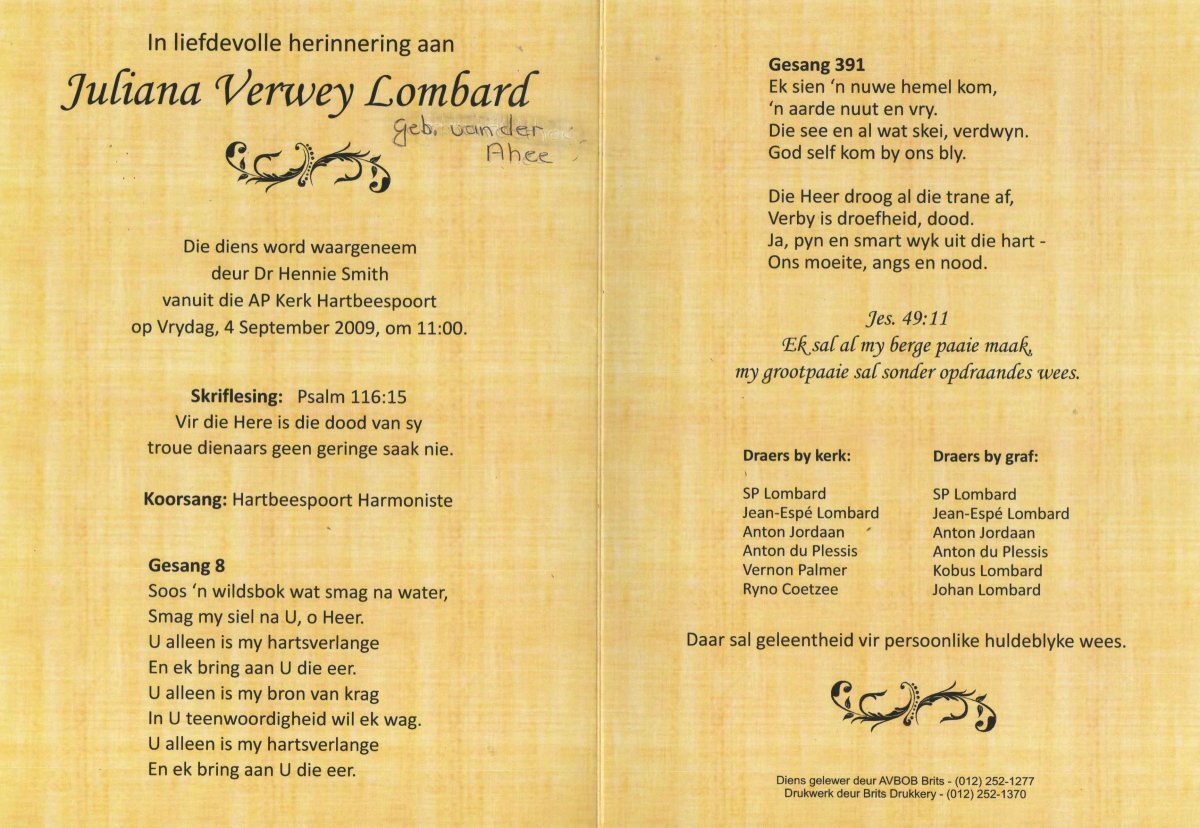 In liefdevolle herinnering aan
Juliana Verwey Lombard
geb. van der
Ahee
Die diens word waargeneem
deur Dr Hennie Smith
vanuit die AP Kerk Hartbeespoort
op Vrydag, 4 September 2009, om 11:00.
Skriflesing: Psalm 116:15
Vir die Here is die dood van sy
troue dienaars geen geringe saak nie.
Koorsang: Hartbeespoort Harmoniste
Gesang 8
Soos ‘n wildsbok wat smag na water,
Smag my siel na U, o Heer.
U alleen is my hartsverlange
En ek bring aan U die eer.
U alleen is my bron van krag
In U teenwoordigheid wil ek wag.
U alleen is my hartsverlange
En ek bring aan U die eer.
Gesang 391
Ek sien ‘n nuwe hemel kom,
‘n aarde nuut en vry.
Die see en al wat skei, verdwyn.
God self kom by ons bly.
Die Heer droog al die trane af,
Verby is droefheid, dood.
Ja, pyn en smart wyk uit die hart -
Ons moeite, angs en nood.
Jes. 49:11
Ek sal al my berge paaie maak,
my grootpaaie sal sonder opdraandes wees.
Draers by kerk:
SP Lombard
Jean-Espé Lombard
Anton Jordaan
Anton du Plessis
Vernon Palmer
Ryno Coetzee
Draers by graf:
SP Lombard
Jean-Espé Lombard
Anton Jordaan
Anton du Plessis
Kobus Lombard
Johan Lombard
Daar sal geleentheid vir persoonlike huldeblyke wees.
Diens gelewer deur AVBOB Brits - (012) 252-1277
Drukwerk deur Brits Drukkery - (012) 252-1370